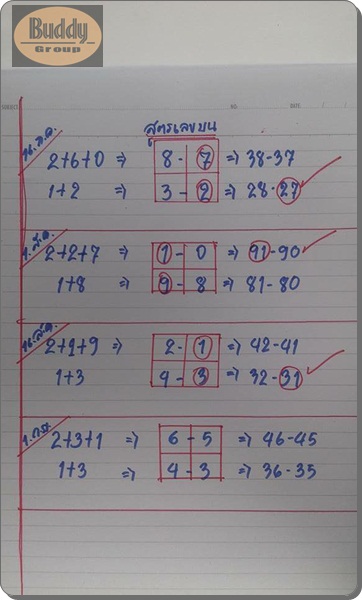 Buddy
Group
สูตรเลขบน
16.ก.ค.
2+6+0 => 8-7 => 38-37
1+2 => 3-2 => 28-27
1.ส.ค.
2+2+7 => 1-0 => 91-90
1+8 => 9-8 => 81-80
16.ส.ค.
2+1+9 => 2-1 => 42-41
1+3 => 4-3 => 32-31
1.ก.ย.
2+3+1 => 6-5 => 46-45
1+3 => 4-3 => 36-35